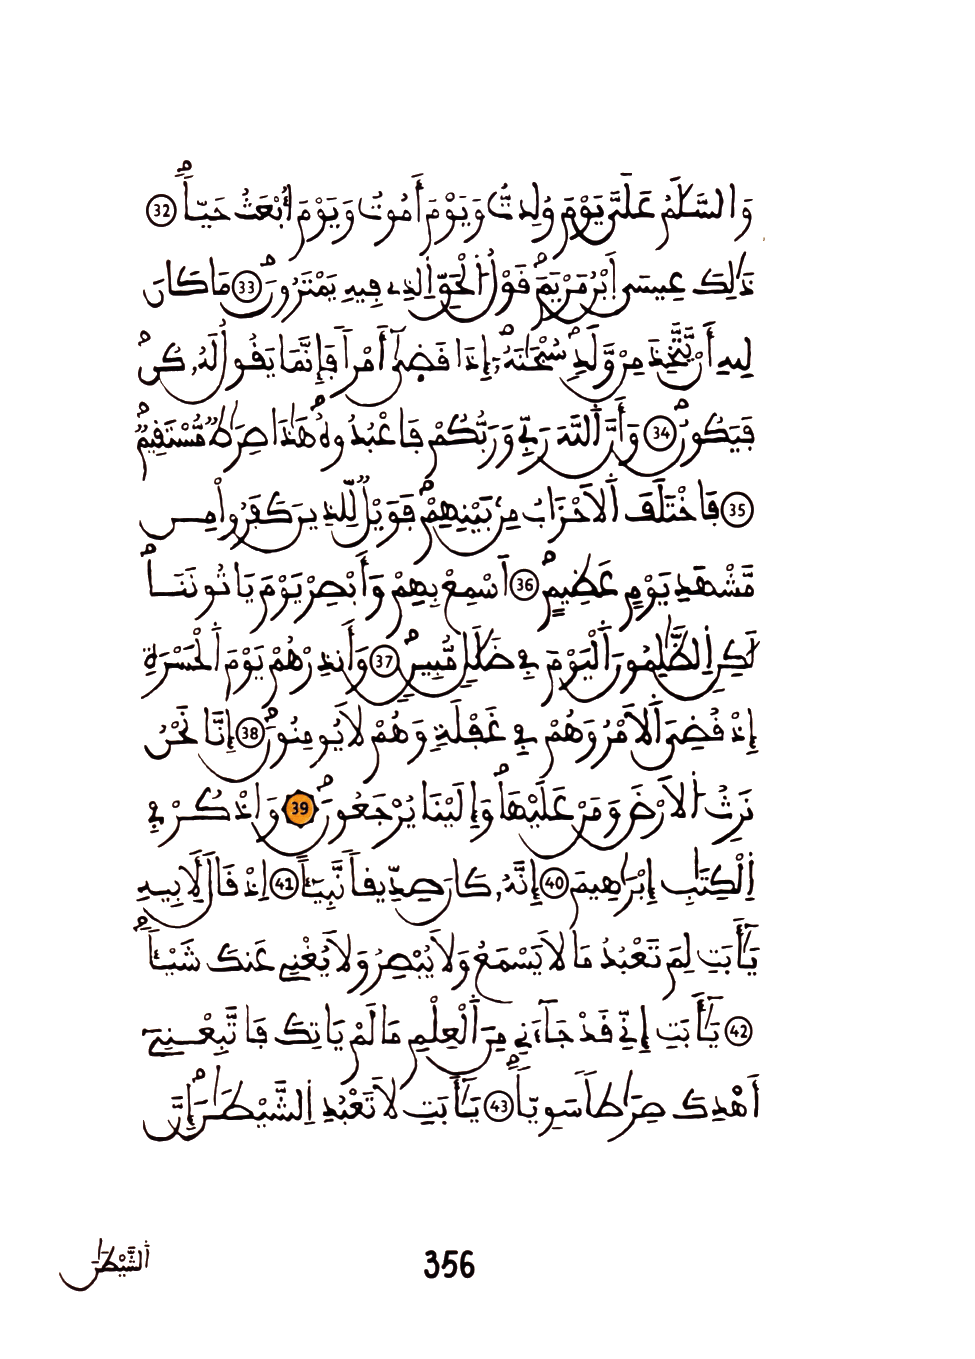 وَالسَّلَٰمُ عَلَيَّ يَوْمَ وُلِدتُّ وَيَوْمَ أَمُوتُ وَيَوْمَ أُبْعَثُ حَيّاٗ 32
ذَٰلِكَ عِيسَى اَبْنُ مَرْيَمَ قَوْلُ اُ۬لْحَقِّ اِ۬لذِے فِيهِ يَمْتَرُونَ 33 مَا كَانَ
لِلهِ أَنْ يَّتَّخِذَ مِنْ وَّلَدٖ سُبْحَٰنَهُۥٓ إِذَا قَضَىٰٓ أَمْراٗ فَإِنَّمَا يَقُولُ لَهُۥ كُن
فَيَكُونُ 34 وَأَنَّ اَ۬للَّهَ رَبِّے وَرَبُّكُمْ فَاعْبُدُوهُ هَٰذَا صِرَٰطٞ مُّسْتَقِيمٞ
35 فَاخْتَلَفَ اَ۬لَاحْزَابُ مِنۢ بَيْنِهِمْ فَوَيْلٞ لِّلذِينَ كَفَرُواْ مِن
مَّشْهَدِ يَوْمٍ عَظِيمٍ 36 اَسْمِعْ بِهِمْ وَأَبْصِرْ يَوْمَ يَاتُونَنَا
لَٰكِنِ اِ۬لظَّٰلِمُونَ اَ۬لْيَوْمَ فِے ضَلَٰلٖ مُّبِينٖ 37 وَأَنذِرْهُمْ يَوْمَ اَ۬لْحَسْرَةِ
إِذْ قُضِيَ اَ۬لَامْرُ وَهُمْ فِے غَفْلَةٖ وَهُمْ لَا يُومِنُونَ 38 إِنَّا نَحْنُ
نَرِثُ اُ۬لَارْضَ وَمَنْ عَلَيْهَا وَإِلَيْنَا يُرْجَعُونَ 39 وَاذْكُرْ فِے
اِ۬لْكِتَٰبِ إِبْرَٰهِيمَ 40 إِنَّهُۥ كَانَ صِدِّيقاٗ نَّبِيٓـٔاً 41 اِذْ قَالَ لِأَبِيهِ
يَٰٓأَبَتِ لِمَ تَعْبُدُ مَا لَا يَسْمَعُ وَلَا يُبْصِرُ وَلَا يُغْنِے عَنكَ شَيْـٔاٗ
42 يَٰٓأَبَتِ إِنِّے قَدْ جَآءَنِے مِنَ اَ۬لْعِلْمِ مَا لَمْ يَاتِكَ فَاتَّبِعْنِيٓ
أَهْدِكَ صِرَٰطاٗ سَوِيّاٗ 43 يَٰٓأَبَتِ لَا تَعْبُدِ اِ۬لشَّيْطَٰنَ إِنَّ
اَ۬لشَّيْطَٰنَ
356